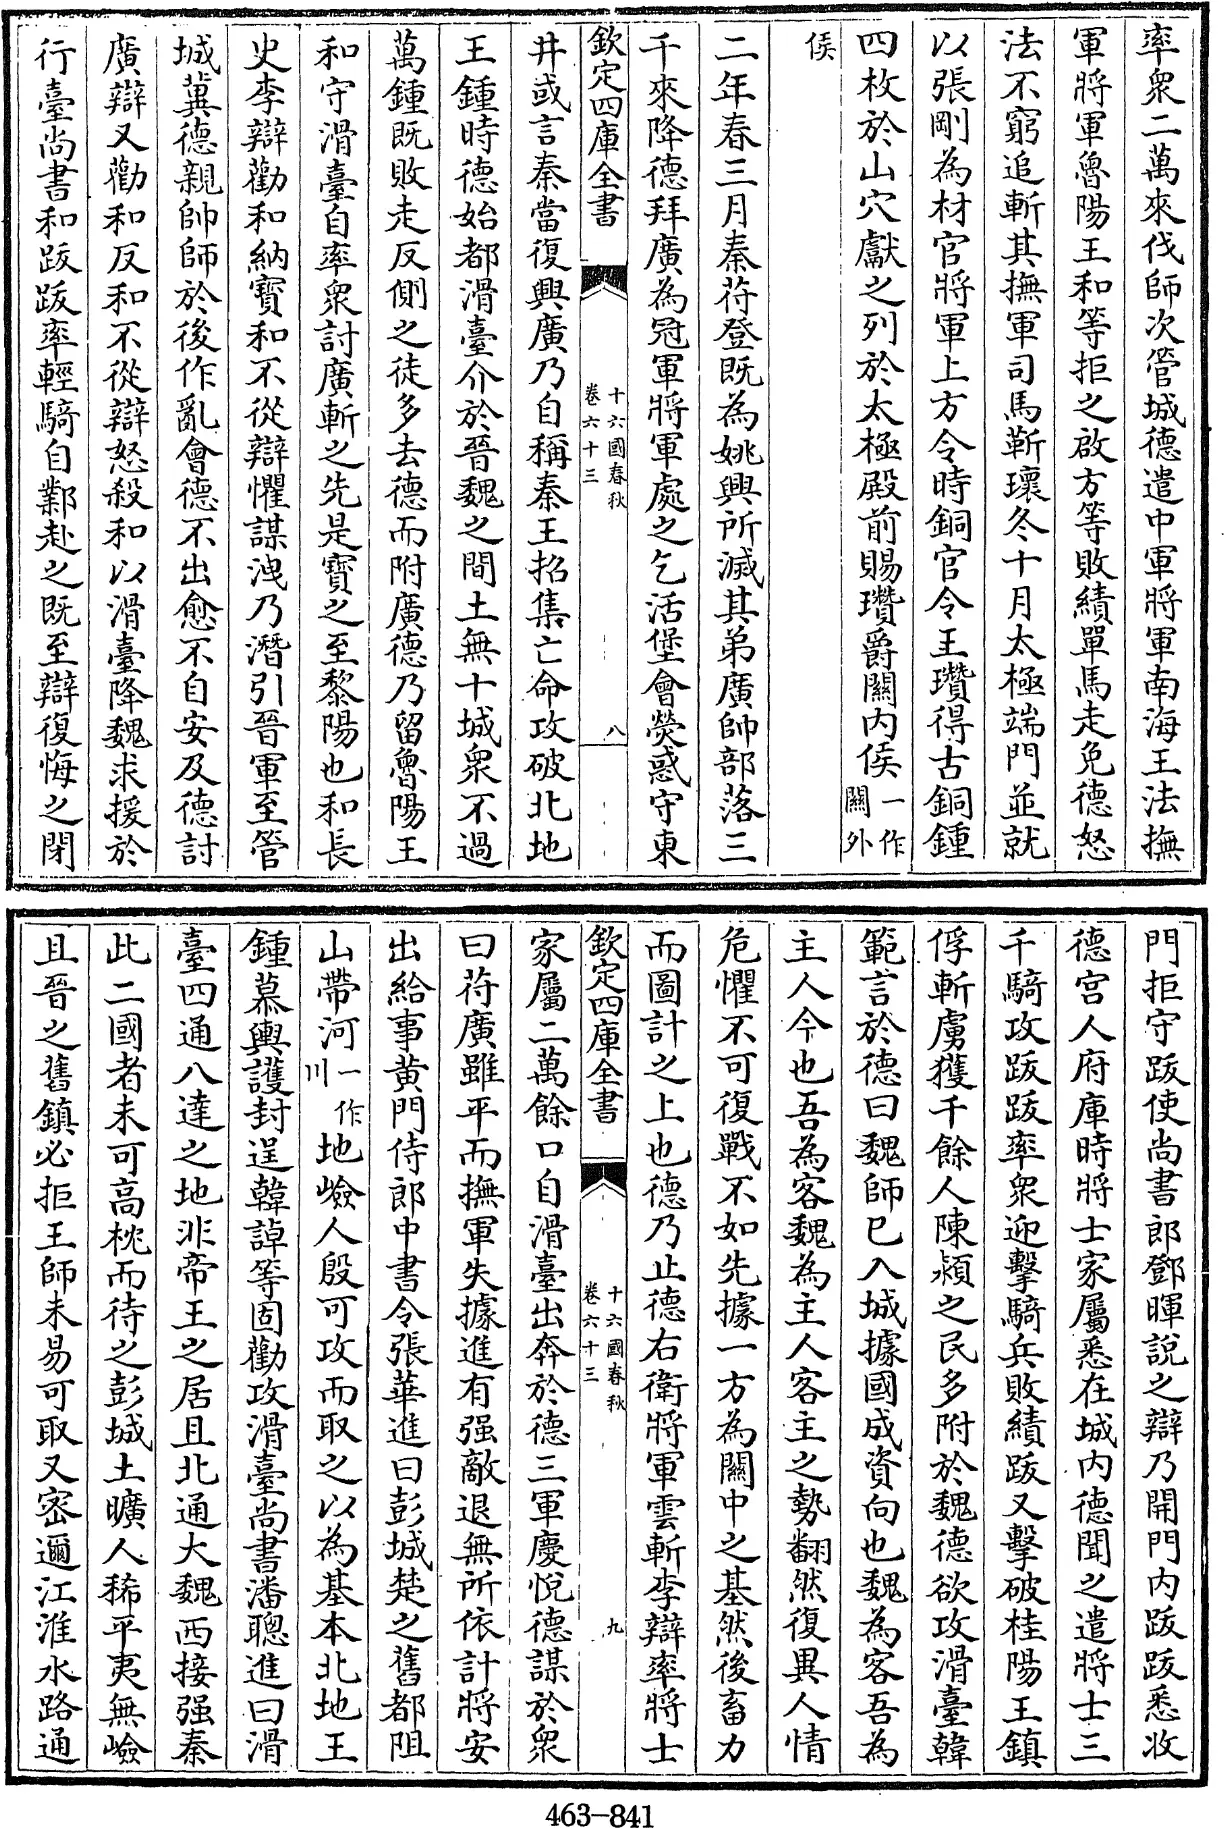 率衆二萬來伐師次管城德遣中軍將軍南海王法撫
軍將軍魯陽王和等拒之啟方等敗績單馬走免德怒
法不窮追斬其撫軍司馬靳瓌冬十月太極端門並就
以張剛為材官將軍上方令時銅官令王瓚得古銅鍾
四枚於山穴獻之列於太極殿前賜瓚爵關内侯一作關外
侯
二年春三月秦苻登既為姚興所滅其弟廣帥部落三
千來降德拜廣為冠軍將軍處之乞活堡會熒惑守東
欽定四庫全書
十六國春秋
卷六十三
八
井或言秦當復興廣乃自稱秦王招集亡命攻破北地
王鍾時德始都滑臺介於晉魏之間土無十城衆不過
萬鍾既敗走反側之徒多去德而附廣德乃留魯陽王
和守滑臺自率衆討廣斬之先是寳之至黎陽也和長
史李辯勸和納寳和不從辯懼謀洩乃潛引晉軍至管
城冀德親帥師於後作亂會德不出愈不自安及德討
廣辯又勸和反和不從辯怒殺和以滑臺降魏求援於
行臺尚書和跋跋率輕騎自鄴赴之既至辯復悔之閉
門拒守跋使尚書郎鄧暉說之辯乃開門内跋跋悉收
德宫人府庫時將士家屬悉在城内德聞之遣將士三
千騎攻跋跋率衆迎擊騎兵敗績跋又擊破桂陽王鎮
俘斬虜獲千餘人陳潁之民多附於魏德欲攻滑臺韓
範言於德曰魏師已入城據國成資向也魏為客吾為
主人今也吾為客魏為主人客主之勢翻然復異人情
危懼不可復戰不如先據一方為關中之基然後畜力
而圖計之上也德乃止德右衛將軍雲斬李辯率將士
欽定四庫全書
十六國春秋
卷六十三
九
家屬二萬餘口自滑臺出奔於德三軍慶悅德謀於衆
曰苻廣雖平而撫軍失據進有强敵退無所依計將安
出給事黄門侍郎中書令張華進曰彭城楚之舊都阻
山帶河一作川地嶮人殷可攻而取之以為基本北地王
鍾慕輿護封逞韓諄等固勸攻滑臺尚書潘聰進曰滑
臺四通八達之地非帝王之居且北通大魏西接强秦
此二國者未可高枕而待之彭城土曠人稀平夷無嶮
且晉之舊鎮必拒王師未易可取又密邇江淮水路通
463-841